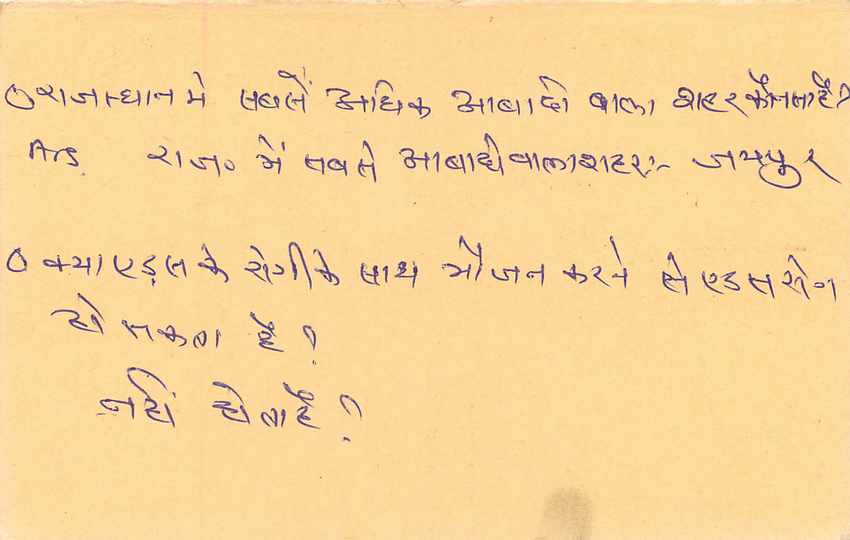 0 राजस्थान मे सबसें अधिक आबादी वाला शहर कौनसा है?
Ans राज० में सबसे आबादी वाला शहर:- जयपुर
0 क्या एड्स के रोगी के साथ भोजन करने से एडस रोग
हो सकता है?
नहीं होता है?